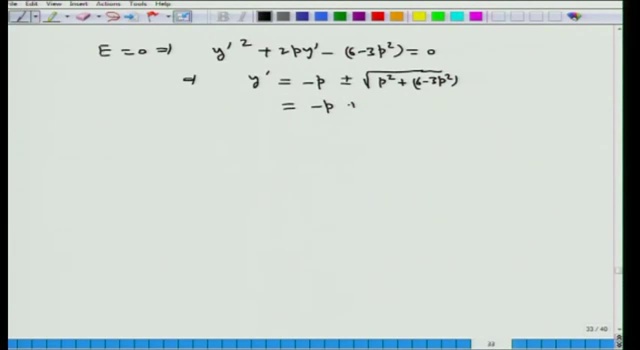 View Insert Actions Tools Help
E = 0 ⇒ y'² + 2py' − (6−3p²) = 0
⇒ y' = −p ± √(p² + (6−3p²))
= −p
33 / 40
33